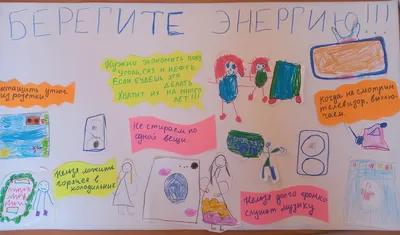 БЕРЕГИТЕ ЭНЕРГИЮ!!!
Нужно экономить
уголь, газ и нефть.
Если будешь это
делать
Хватит их на много
лет!!!
утюг
из розетки
Не стираем по
одной вещи.
Когда не смотрим
телевизор, выклю-
чаем.
Нельзя ложить
горячее в
холодильник
Нельзя долго громко
слушать музыку